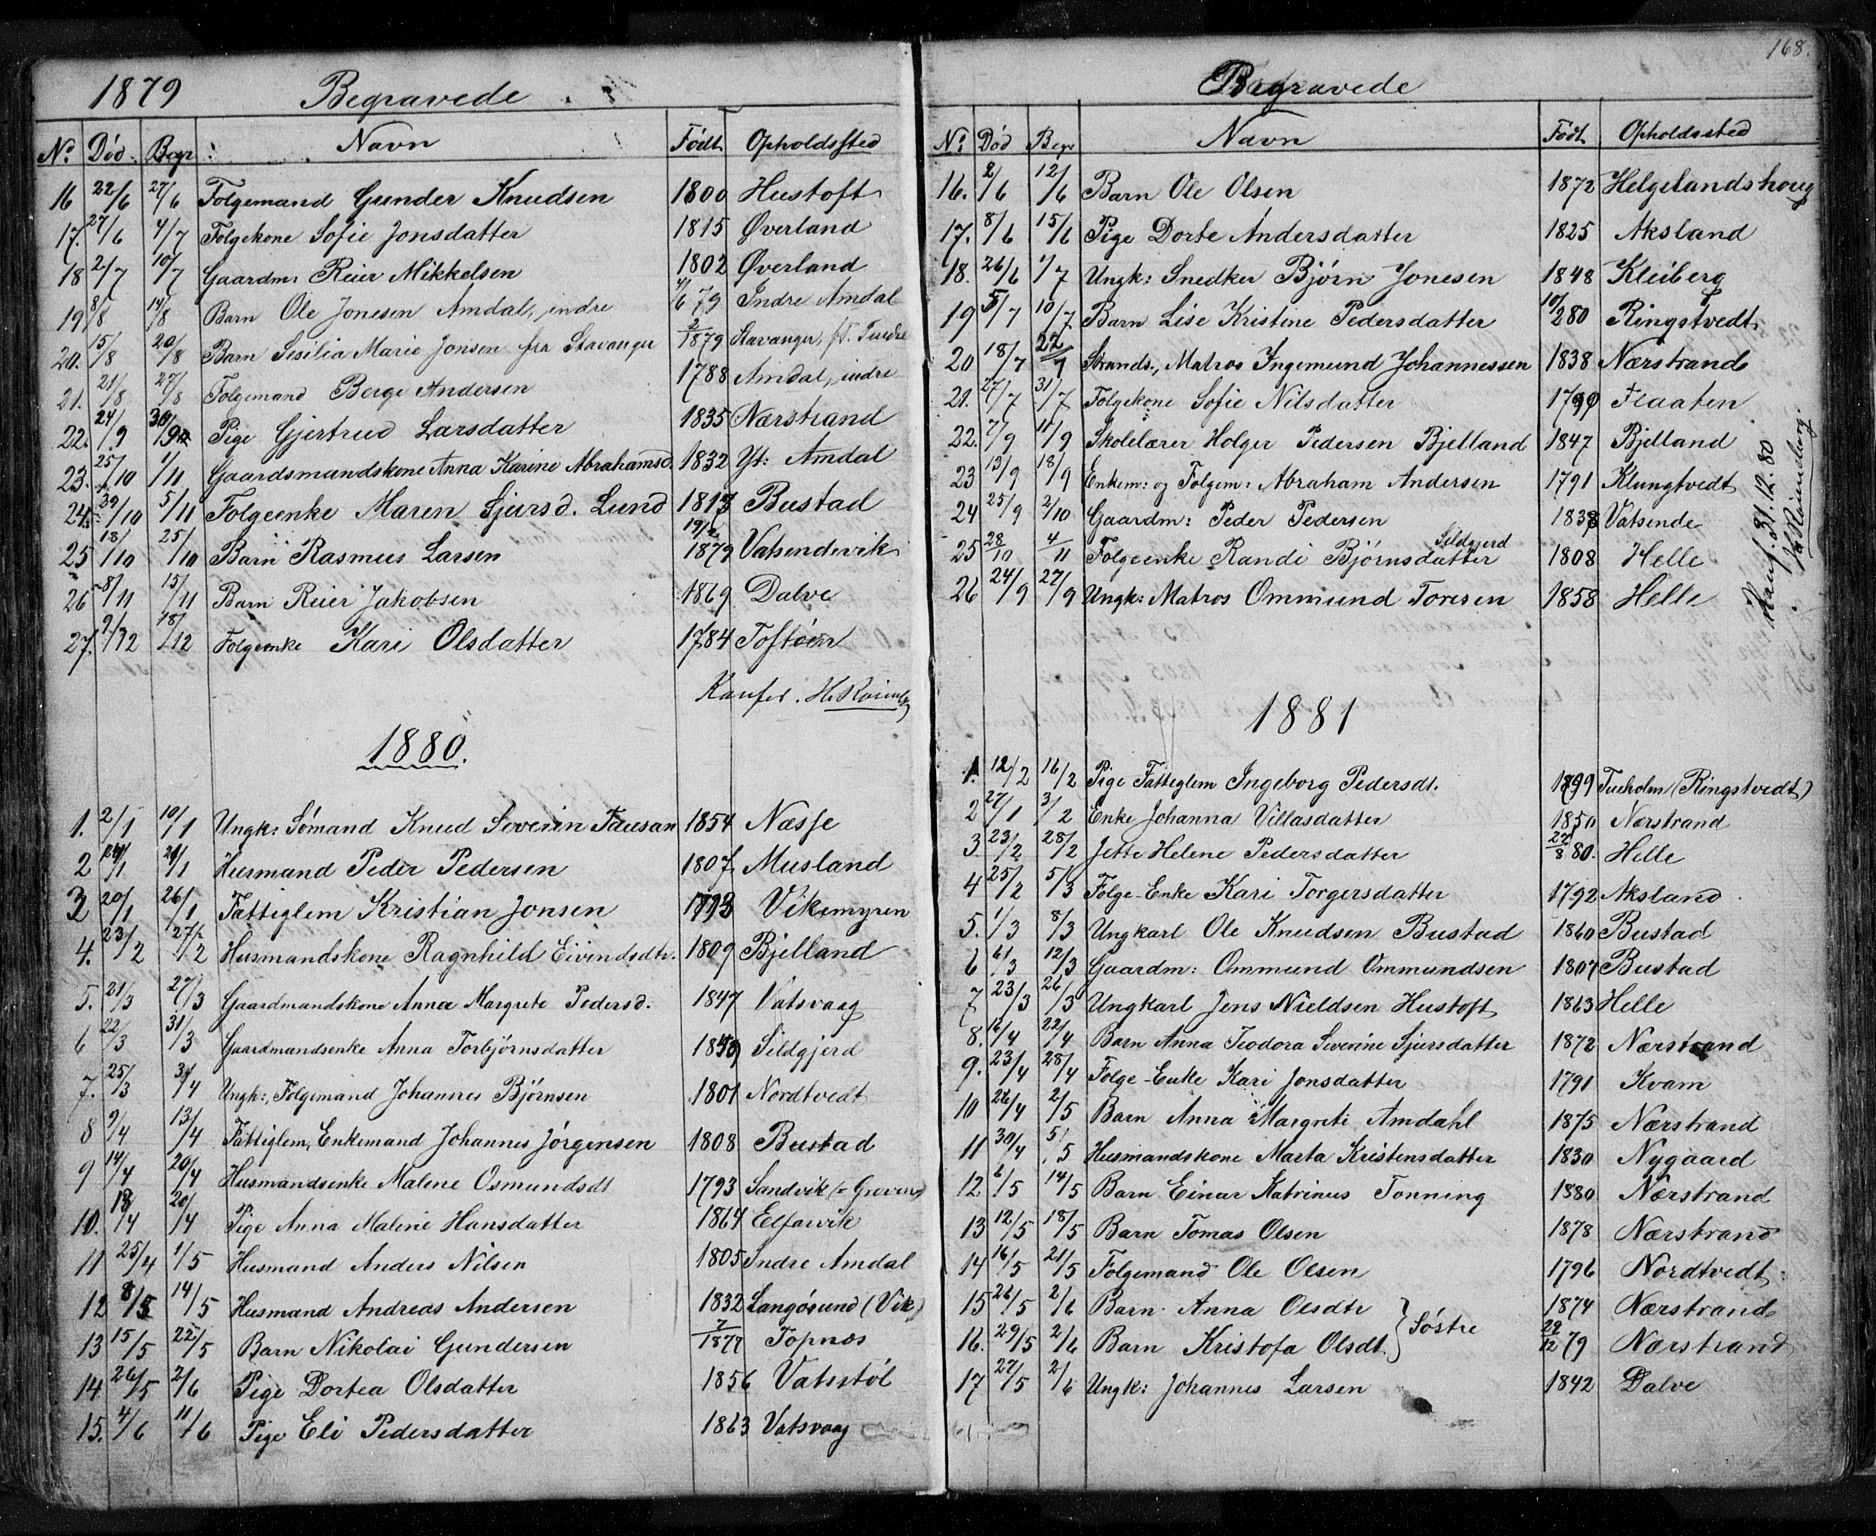 1879 Begravede
No. Død. Begr: Navn Født Opholdssted
16 22/6 27/6 Folgemand Gunder Knudsen 1800 Hustoft
17. 27/6 4/7 Folgekone Sofie Jonsdatter 1815 Øverland
18 2/7 10/7 Gaardm: Reier Mikkelsen 1802 Øverland
19 8/8 14/8 Barn Ole Jonesen Amdal, indre 4/6 79 Indre Amdal
20. 15/8 20/8 Barn Sesilia Marie Jonsen fra Stavanger 1879 Stavanger,
21. 21/8 27/8 Folgemand Berge Andersen 1788 Amdal, indre
22. 24/9 30/9 Pige Gjertrud Larsdatter 1835 Nærstrand
23. 25/10 1/11 Gaardsmandskone Anna Karine Abrahamsd. 1832 Yt: Amdal
24. 29/10 5/11 Folgeenke Maren Sjursd. Lund 1813 Bustad
25 18/10 25/10 Barn Rasmus Larsen 1879 Vatsendevik
26 8/11 15/11 Barn Reier Jakobsen 1869 Dalve
27. 9/12 18/12 Folgeenke Kari Olsdatter 1784 Toftøen
1880.
1. 2/1 10/1 Ungk: Sømand Knud Severin Tausan 1854 Næsse
2 /1 /1 Husmand Peder Pedersen 1807 Musland
3 20/1 26/1 Fattiglem Kristian Jonsen 1793 Vikemyren
4. 23/2 27/2 Husmandskone Ragnhild Eivindsdtr. 1809 Bjelland
5. 21/3 27/3 Gaardmandskone Anna Margrete Pedersd. 1847 Vatsvaag
6 22/3 31/3 Gaardmandsenke Anna Torbjørnsdatter Sildgjerd
7. 25/3 3/4 Ungk:, Folgemand Johannes Bjørnsen 1801 Nordtvedt
8 9/4 13/4 Fattiglem, Enkemand Johannes Jørgensen 1808 Bustad
9 14/4 20/4 Husmandsenke Malene Osmundsdt 1793 Sandvik
10. 18/4 20/4 Pige Anna Maline Hansdatter 1864 Elfarvik
11 25/4 1/5 Husmand Anders Nilsen 1805 Indre Amdal
12 8/5 14/5 Husmand Andreas Andersen 1832 Langøsund (Vik)
13 15/5 22/5 Barn Nikolai Gundersen 7/1877 Topnæs
14 26/5 2/6 Pige Dortea Olsdatter 1856 Vatsstøl
15. 4/6 11/6 Pige Eli Pedersdatter 1863 Vatsvaag
168.
Begravede
No Død Begr Navn Født Opholdssted
16. 2/6 12/6 Barn Ole Olsen 1872 Helgelandshoug
17. 8/6 15/6 Pige Dorte Andersdatter 1825 Aksland
18. 26/6 1/7 Ungk: Snedker Bjørn Jonesen 1848 Kleiberg
19 5/7 10/7 Barn Lise Kristine Pedersdatter 10/2 80 Ringstvedt
20 18/7 22/7 Strands., Matros Ingemund Johannessen 1838 Nærstrand
21. 27/7 31/7 Folgekone Sofie Nilsdatter 1790 Flaaten
22. 7/9 11/9 Skolelærer Holger Pedersen Bjelland 1847 Bjelland
23 13/9 18/9 Enkem: og Folgem: Abraham Andersen 1791 Klungtvedt
24 25/9 2/10 Gaardm: Peder Pedersen Vatsende
25 28/10 4/11 Folgeenke Randi Bjørnsdatter Sildgjerd 1808 Helle
26 24/9 27/9 Ungk: Matros Ommund Toresen 1858 Helle
31.12.80
1881
1. 12/2 16/2 Pige Fattiglem Ingeborg Pedersdt. 1799 (Ringstvedt)
2 27/1 3/2 Enke Johanna Villasdatter 1850 Nærstrand
3 23/2 28/2 Jette Helene Pedersdatter 22/8 80. Helle
4 25/2 5/3 Folge-Enke Kari Torgersdatter 1792 Aksland
5. 1/3 8/3 Ungkarl Ole Knudsen Bustad 1860 Bustad
6 6/3 12/3 Gaardm: Ommund Ommundsen 1807 Bustad
7 23/3 26/3 Ungkarl Jens Nieldsen Hustoft 1863 Helle
8. 16/4 22/4 Barn Anna Teodora Severine Sjursdatter 1872 Nærstrand
9. 23/4 28/4 Folge-Enke Kari Jonsdatter 1791 Kvam
10 26/4 2/5 Barn Anna Margrete Amdahl 1875 Nærstrand
11 30/4 5/5 Husmandskone Marta Kristensdatter 1830 Nygaard
12 6/5 14/5 Barn Einar Katrinus Tonning 1880 Nærstrand
13 12/5 18/5 Barn Tomas Olsen 1878 Nærstrand
14 16/5 21/5 Folgemand Ole Olsen 1796 Nordtvedt
15 26/5 2/6 Barn Anna Olsdtr } Søstre 1874 Nærstrand
16. 29/5 2/6 Barn Kristofa Olsdt. 29/12 79 Nærstrand
17 27/5 2/6 Ungk: Johannes Larsen 1842 Dalve